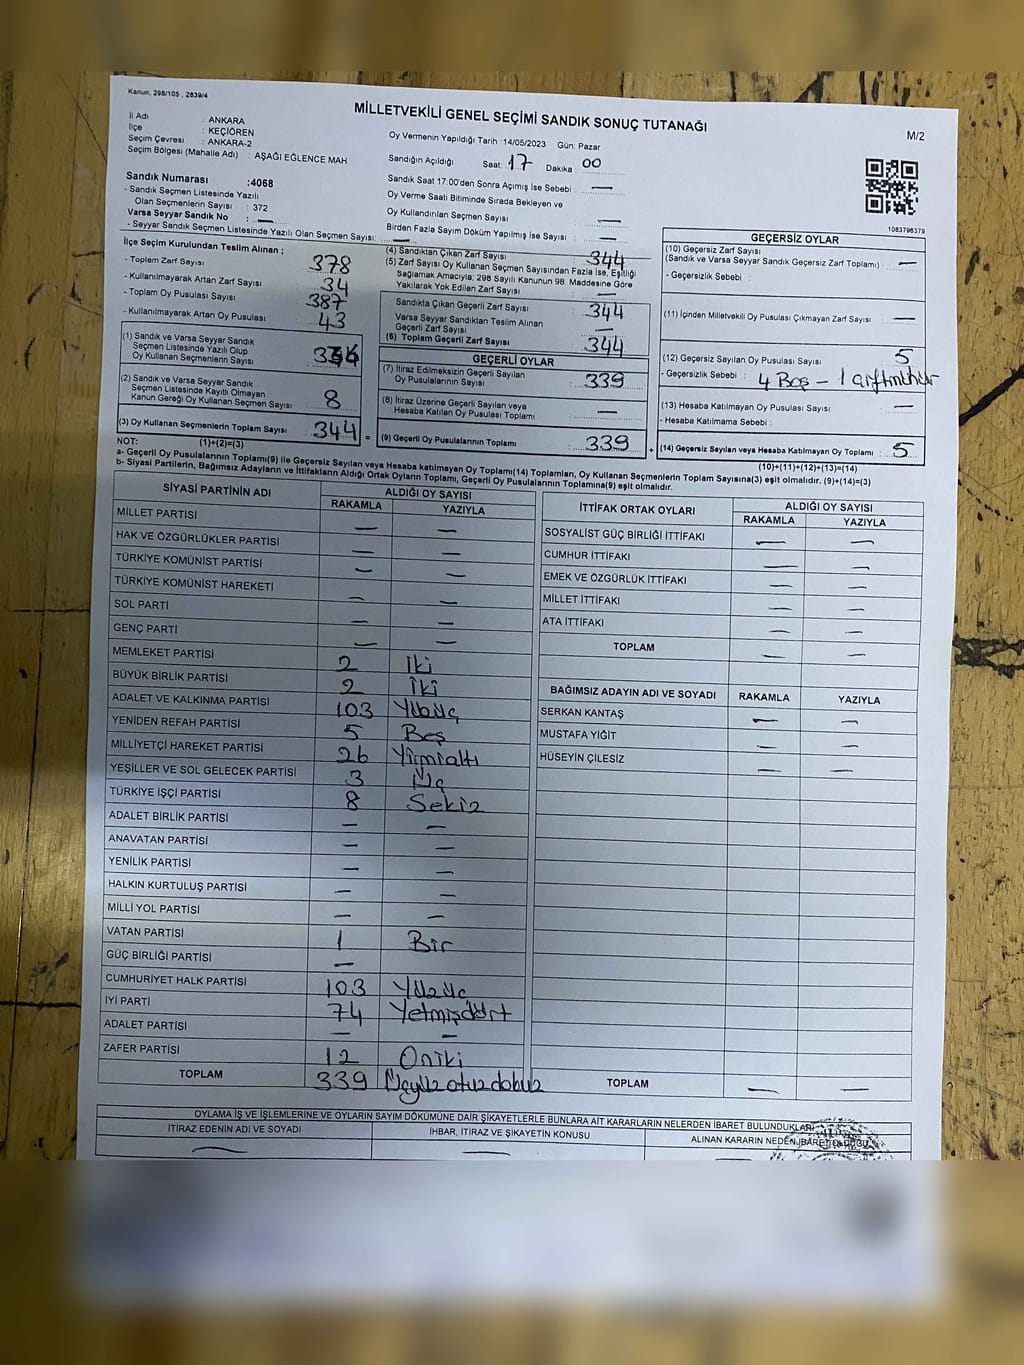 Kanun, 298/105 , 2839/4
MİLLETVEKİLİ GENEL SEÇİMİ SANDIK SONUÇ TUTANAĞI
M/2
İl Adı : ANKARA
İlçe : KEÇİÖREN
Seçim Çevresi : ANKARA-2
Seçim Bölgesi (Mahalle Adı) : AŞAĞI EĞLENCE MAH
Oy Vermenin Yapıldığı Tarih : 14/05/2023 Gün: Pazar
Sandığın Açıldığı Saat: 17 Dakika : 00
Sandık Saat 17:00'den Sonra Açımış İse Sebebi : —
Oy Verme Saati Bitiminde Sırada Bekleyen ve
Oy Kullandırılan Seçmen Sayısı : —
Birden Fazla Sayım Döküm Yapılmış İse Sayısı : —
Sandık Numarası :4068
- Sandık Seçmen Listesinde Yazılı
Olan Seçmenlerin Sayısı : 372
Varsa Seyyar Sandık No : —
- Seyyar Sandık Seçmen Listesinde Yazılı Olan Seçmen Sayısı: —
1083796379
İlçe Seçim Kurulundan Teslim Alınan ;
- Toplam Zarf Sayısı : 378
- Kullanılmayarak Artan Zarf Sayısı : 34
- Toplam Oy Pusulası Sayısı : 387
- Kullanılmayarak Artan Oy Pusulası : 43
(1) Sandık ve Varsa Seyyar Sandık
Seçmen Listesinde Yazılı Olup
Oy Kullanan Seçmenlerin Sayısı : 336
(2) Sandık ve Varsa Seyyar Sandık
Seçmen Listesinde Kayıtlı Olmayan
Kanun Gereği Oy Kullanan Seçmen Sayısı : 8
(3) Oy Kullanan Seçmenlerin Toplam Sayısı : 344 =
(4) Sandıktan Çıkan Zarf Sayısı : 344
(5) Zarf Sayısı Oy Kullanan Seçmen Sayısından Fazla İse, Eşitliği
Sağlamak Amacıyla, 298 Sayılı Kanunun 98. Maddesine Göre
Yakılarak Yok Edilen Zarf Sayısı : —
Sandıkta Çıkan Geçerli Zarf Sayısı : 344
Varsa Seyyar Sandıktan Teslim Alınan
Geçerli Zarf Sayısı : —
(6) Toplam Geçerli Zarf Sayısı : 344
GEÇERLİ OYLAR
(7) İtiraz Edilmeksizin Geçerli Sayılan
Oy Pusulalarının Sayısı : 339
(8) İtiraz Üzerine Geçerli Sayılan veya
Hesaba Katılan Oy Pusulası Toplamı : —
(9) Geçerli Oy Pusulalarının Toplamı : 339 +
GEÇERSİZ OYLAR
(10) Geçersiz Zarf Sayısı
(Sandık ve Varsa Seyyar Sandık Geçersiz Zarf Toplamı) : —
- Geçersizlik Sebebi :
(11) İçinden Milletvekili Oy Pusulası Çıkmayan Zarf Sayısı : —
(12) Geçersiz Sayılan Oy Pusulası Sayısı : 5
- Geçersizlik Sebebi : 4 Boş - 1
(13) Hesaba Katılmayan Oy Pusulası Sayısı : —
- Hesaba Katılmama Sebebi :
(14) Geçersiz Sayılan veya Hesaba Katılmayan Oy Toplamı : 5
NOT: (1)+(2)=(3)
(10)+(11)+(12)+(13)=(14)
a- Geçerli Oy Pusulalarının Toplamı(9) ile Geçersiz Sayılan veya Hesaba katılmayan Oy Toplamı(14) Toplamları, Oy Kullanan Seçmenlerin Toplam Sayısına(3) eşit olmalıdır. (9)+(14)=(3)
b- Siyasi Partilerin, Bağımsız Adayların ve İttifakların Aldığı Ortak Oyların Toplamı, Geçerli Oy Pusulalarının Toplamına(9) eşit olmalıdır.
SİYASİ PARTİNİN ADI ALDIĞI OY SAYISI
RAKAMLA YAZIYLA
MİLLET PARTİSİ — —
HAK VE ÖZGÜRLÜKLER PARTİSİ — —
TÜRKİYE KOMÜNİST PARTİSİ — —
TÜRKİYE KOMÜNİST HAREKETİ — —
SOL PARTİ — —
GENÇ PARTİ — —
MEMLEKET PARTİSİ 2 İki
BÜYÜK BİRLİK PARTİSİ 2 İki
ADALET VE KALKINMA PARTİSİ 103 Yüzüç
YENİDEN REFAH PARTİSİ 5 Beş
MİLLİYETÇİ HAREKET PARTİSİ 26 Yirmialtı
YEŞİLLER VE SOL GELECEK PARTİSİ 3 Üç
TÜRKİYE İŞÇİ PARTİSİ 8 Sekiz
ADALET BİRLİK PARTİSİ — —
ANAVATAN PARTİSİ — —
YENİLİK PARTİSİ — —
HALKIN KURTULUŞ PARTİSİ — —
MİLLİ YOL PARTİSİ — —
VATAN PARTİSİ 1 Bir
GÜÇ BİRLİĞİ PARTİSİ —
CUMHURİYET HALK PARTİSİ 103 Yüzüç
İYİ PARTİ 74 Yetmişdört
ADALET PARTİSİ — —
ZAFER PARTİSİ 12 Oniki
TOPLAM 339 Üçyüzotuzdokuz
İTTİFAK ORTAK OYLARI ALDIĞI OY SAYISI
RAKAMLA YAZIYLA
SOSYALİST GÜÇ BİRLİĞİ İTTİFAKI — —
CUMHUR İTTİFAKI — —
EMEK VE ÖZGÜRLÜK İTTİFAKI — —
MİLLET İTTİFAKI — —
ATA İTTİFAKI — —
TOPLAM — —
BAĞIMSIZ ADAYIN ADI VE SOYADI RAKAMLA YAZIYLA
SERKAN KANTAŞ — —
MUSTAFA YİĞİT — —
HÜSEYİN ÇİLESİZ — —
TOPLAM — —
OYLAMA İŞ VE İŞLEMLERİNE VE OYLARIN SAYIM DÖKÜMÜNE DAİR ŞİKAYETLERLE BUNLARA AİT KARARLARIN NELERDEN İBARET BULUNDUKLARI
İTİRAZ EDENİN ADI VE SOYADI İHBAR, İTİRAZ VE ŞİKAYETİN KONUSU ALINAN KARARIN NEDEN İBARET OLDUĞU
— —